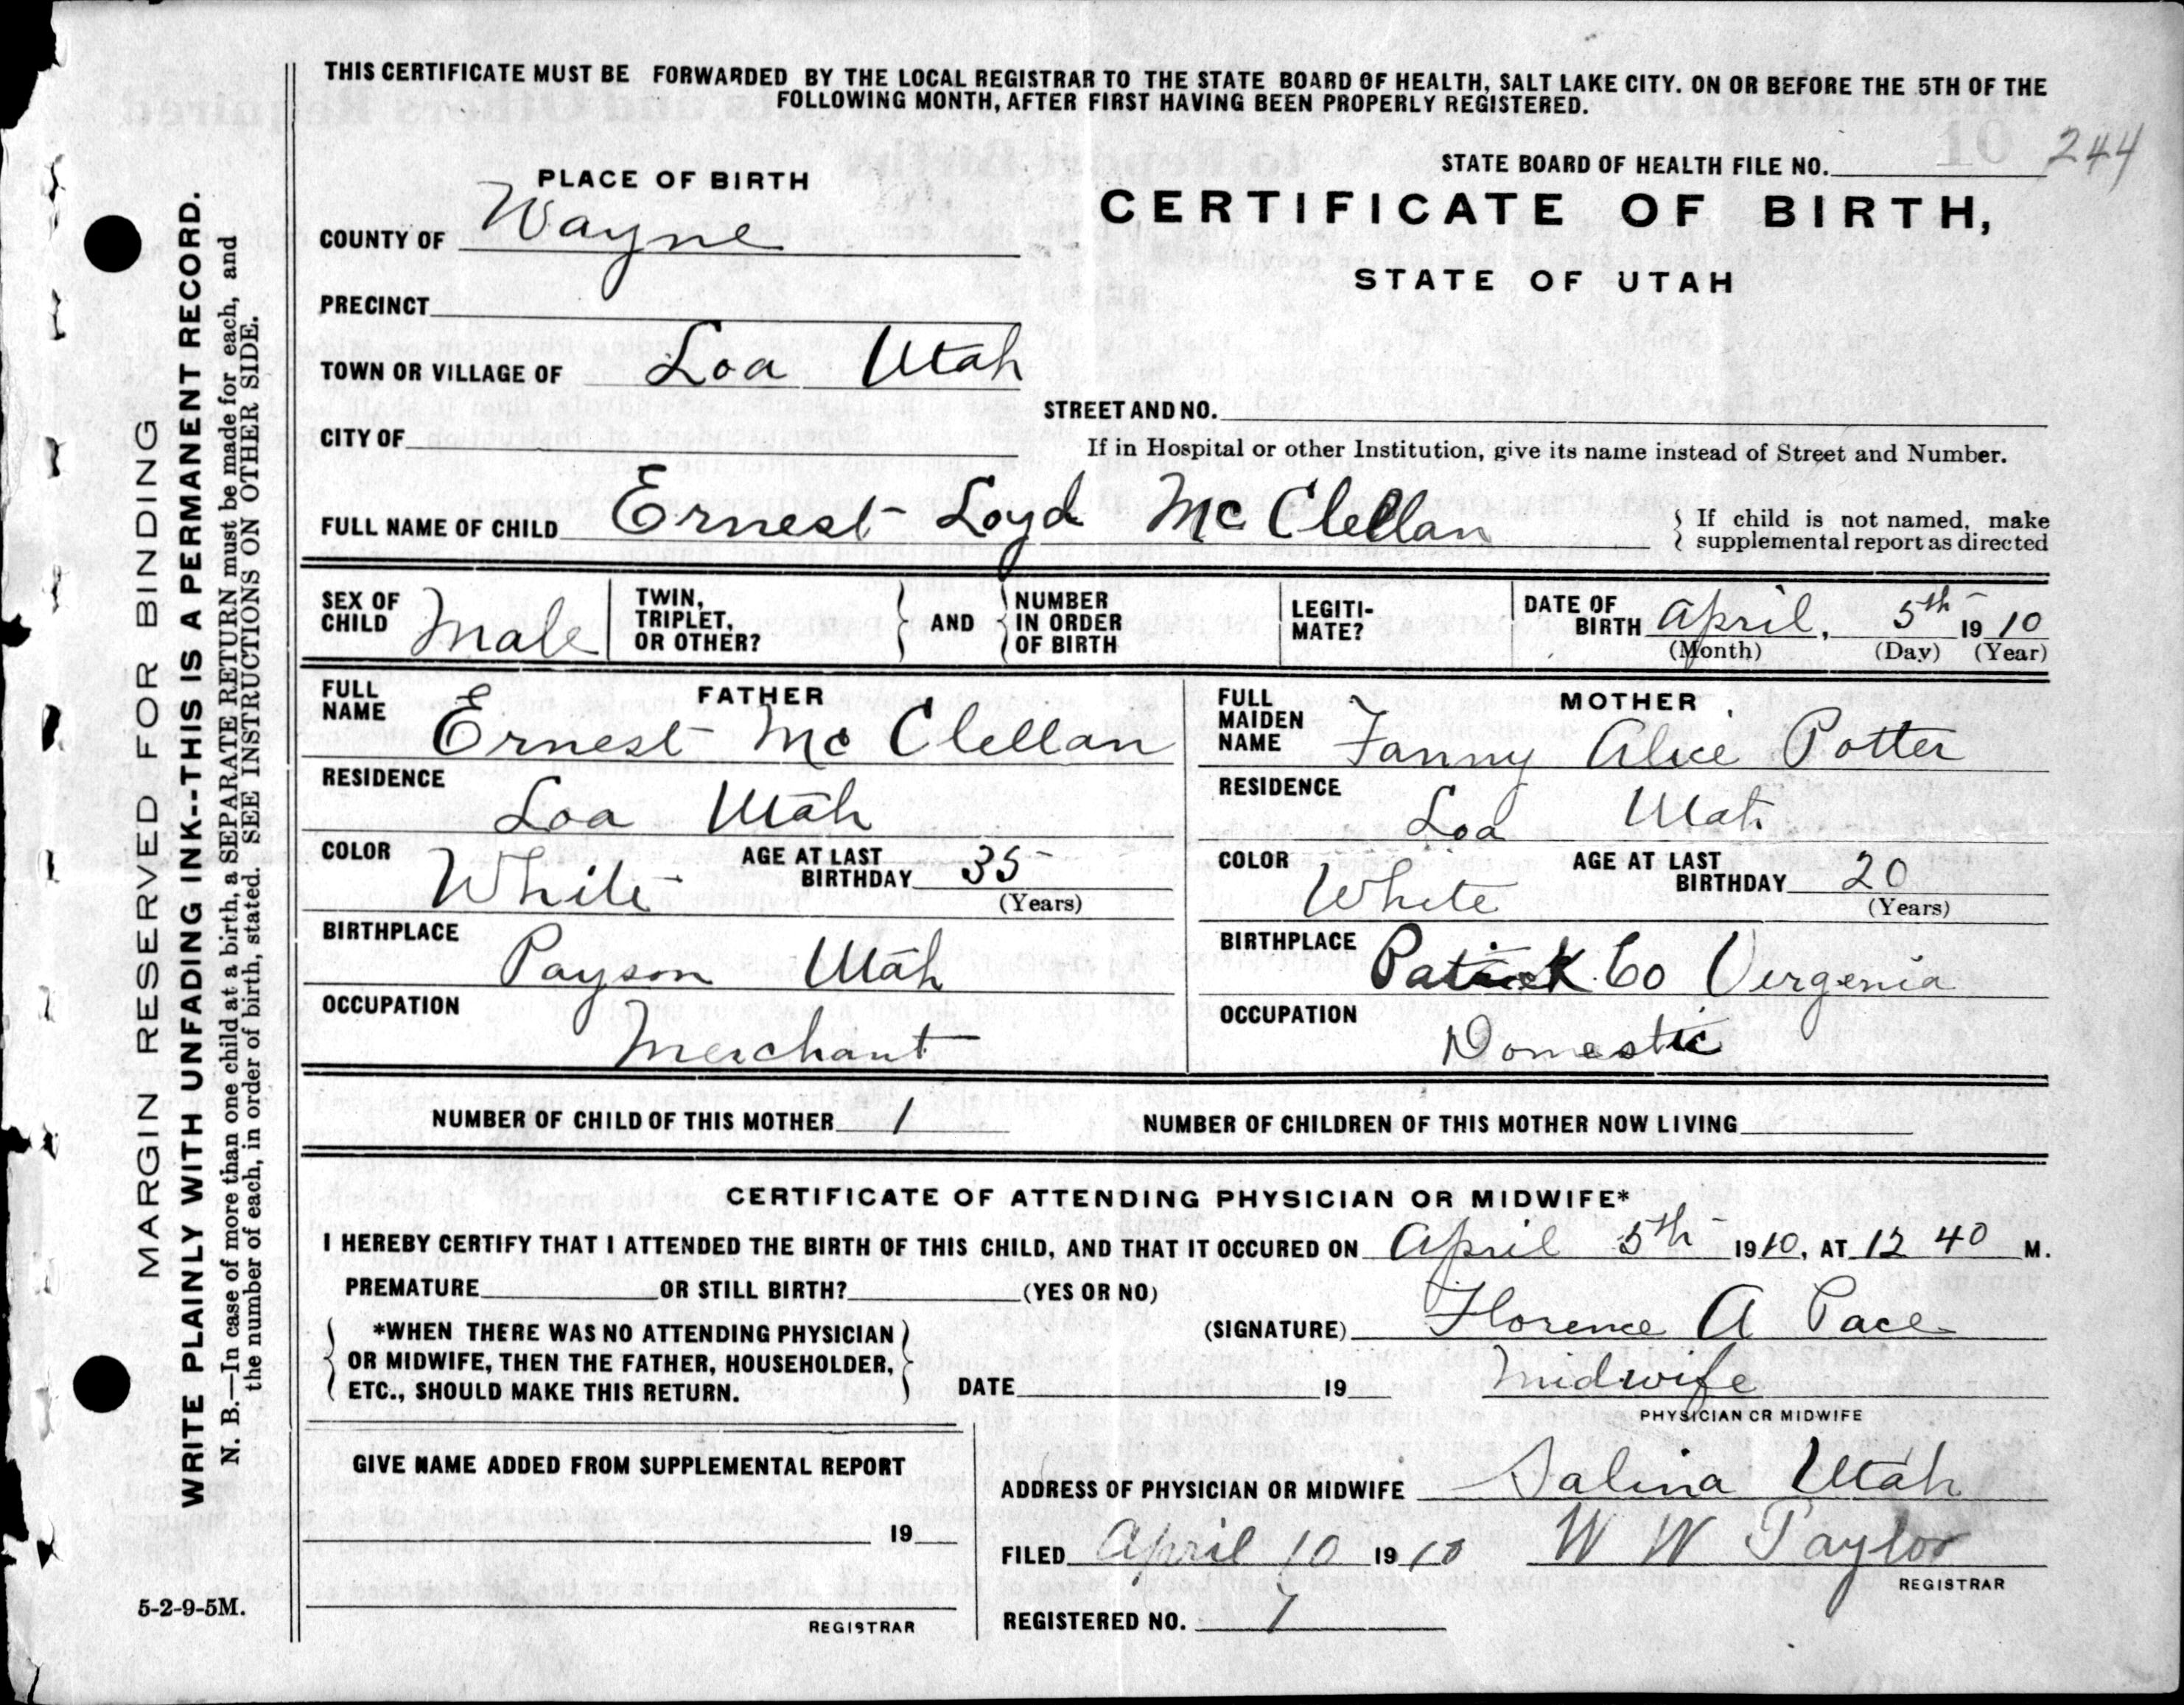 THIS CERTIFICATE MUST BE FORWARDED BY THE LOCAL REGISTRAR TO THE STATE BOARD OF HEALTH, SALT LAKE CITY. ON OR BEFORE THE 5TH OF THE
FOLLOWING MONTH, AFTER FIRST HAVING BEEN PROPERLY REGISTERED.
STATE BOARD OF HEALTH FILE NO. 10 244
PLACE OF BIRTH
CERTIFICATE OF BIRTH,
COUNTY OF Wayne
STATE OF UTAH
PRECINCT
TOWN OR VILLAGE OF Loa Utah
STREET AND NO.
CITY OF
If in Hospital or other Institution, give its name instead of Street and Number.
FULL NAME OF CHILD Ernest Loyd McClellan
If child is not named, make
supplemental report as directed
SEX OF
CHILD Male
TWIN,
TRIPLET,
OR OTHER?
AND
NUMBER
IN ORDER
OF BIRTH
LEGITI-
MATE?
DATE OF
BIRTH April, 5th 1910
(Month) (Day) (Year)
FATHER
FULL
NAME
Ernest McClellan
RESIDENCE
Loa Utah
COLOR White
AGE AT LAST
BIRTHDAY 35
(Years)
BIRTHPLACE
Payson Utah
OCCUPATION
Merchant
MOTHER
FULL
MAIDEN
NAME Fanny Alice Potter
RESIDENCE
Loa Utah
COLOR White
AGE AT LAST
BIRTHDAY 20
(Years)
BIRTHPLACE Patrick Co Vergenia
OCCUPATION
Domestic
NUMBER OF CHILD OF THIS MOTHER 1
NUMBER OF CHILDREN OF THIS MOTHER NOW LIVING
CERTIFICATE OF ATTENDING PHYSICIAN OR MIDWIFE*
I HEREBY CERTIFY THAT I ATTENDED THE BIRTH OF THIS CHILD, AND THAT IT OCCURED ON April 5th 1910, AT 12 40 M.
PREMATURE OR STILL BIRTH? (YES OR NO)
*WHEN THERE WAS NO ATTENDING PHYSICIAN
OR MIDWIFE, THEN THE FATHER, HOUSEHOLDER,
ETC., SHOULD MAKE THIS RETURN.
(SIGNATURE) Florence A Pace
DATE 19 Midwife
PHYSICIAN OR MIDWIFE
GIVE NAME ADDED FROM SUPPLEMENTAL REPORT
19
REGISTRAR
ADDRESS OF PHYSICIAN OR MIDWIFE Salina Utah
FILED April 10 1910 W W Taylor
REGISTRAR
REGISTERED NO. 7
5-2-9-5M.
MARGIN RESERVED FOR BINDING
WRITE PLAINLY WITH UNFADING INK--THIS IS A PERMANENT RECORD.
N. B.—In case of more than one child at a birth, a SEPARATE RETURN must be made for each, and
the number of each, in order of birth, stated. SEE INSTRUCTIONS ON OTHER SIDE.